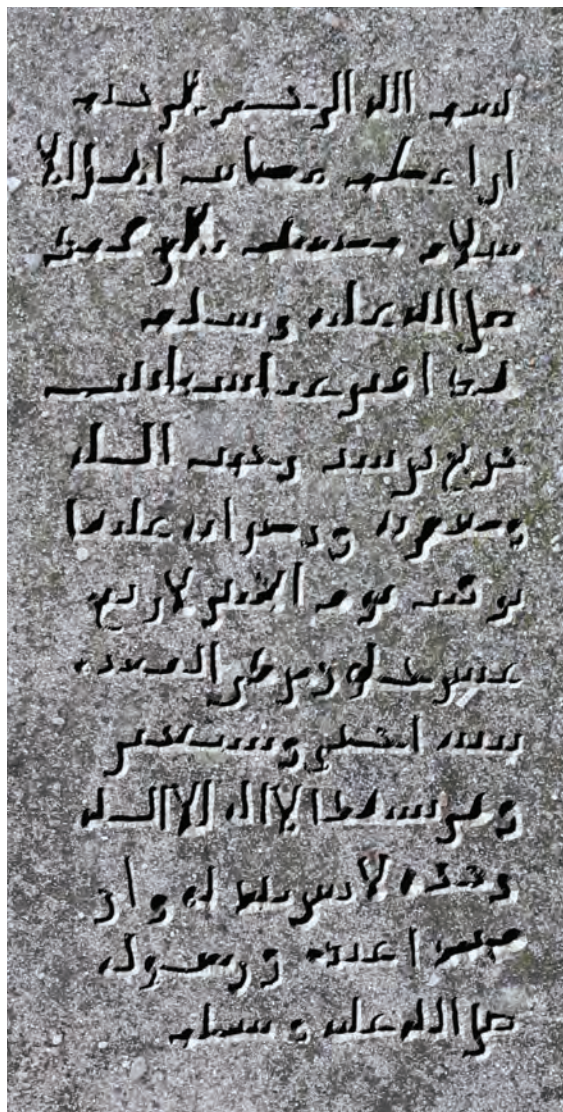 بسم الله الرحمن الرحيم
ان اعظم مصايب اهل الا
سلام مصيبتهم بالنبي محمد
صلى الله عليه وسلم
هذا قبر عباسة ابنت
جريج بن سند رحمت الله
ومغفرته ورضوانه عليها
توفيت يوم الاثنين لاربع
عشر خلون من ذي القعدة
سنة احدى وسبعين
وهي تشهد الا اله الا الله
وحده لا شريك له وان
محمدا عبده ورسوله
صلى الله عليه وسلم